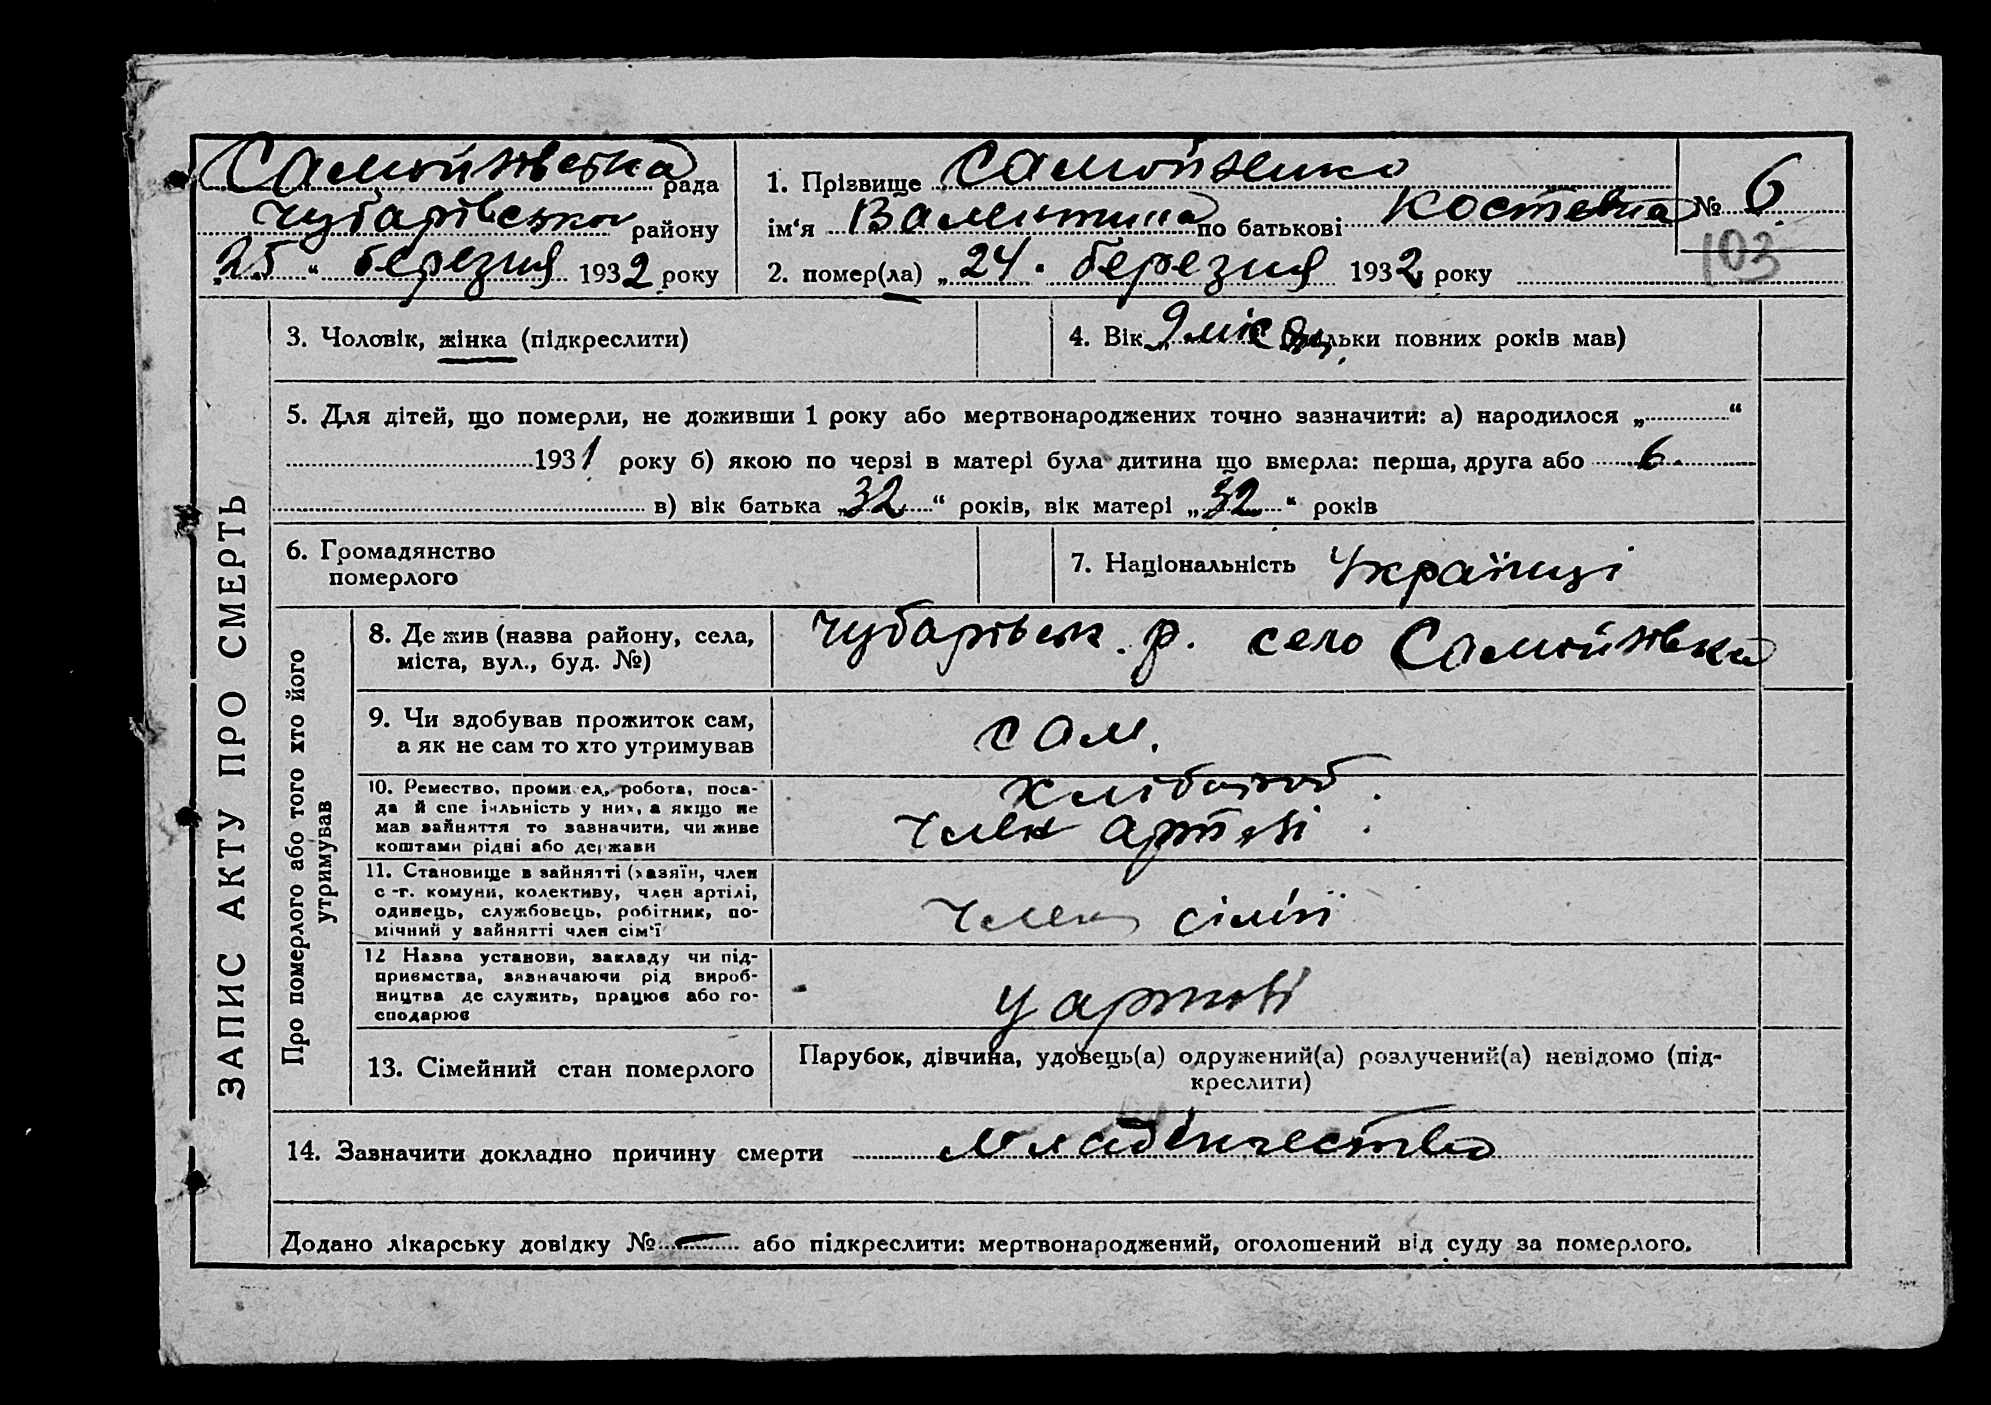 Самойлівська рада
Чубарівського району
"25" березня 1932 року
1. Прізвище Самойленко
ім'я Валентина по батькові Костевна
2. помер(ла) „24" березня 1932 року
№ 6
103
ЗАПИС АКТУ ПРО СМЕРТЬ
3. Чоловік, жінка (підкреслити)
4. Вік „9 місяц. (скільки повних років мав)
5. Для дітей, що померли, не доживши 1 року або мертвонароджених точно зазначити: а) народилося „ “
1931 року б) якою по черзі в матері була дитина що вмерла: перша, друга або 6.
в) вік батька „32“ років, вік матері „32“ років
6. Громадянство
померлого
7. Національність Українці
Про померлого або того хто його
утримував
8. Де жив (назва району, села,
міста, вул., буд. №)
Чубарівськ. р. село Самойлівка
9. Чи здобував прожиток сам,
а як не сам то хто утримував
сам.
10. Ремество, промисел, робота, поса-
да й спеціяльність у них, а якщо не
мав зайняття то зазначити, чи живе
коштами рідні або держави
хлібороб.
член артелі.
11. Становище в зайнятті (хазяїн, член
с.-г. комуни, колективу, член артілі,
одинець, службовець, робітник, по-
мічний у зайнятті член сім'ї
член сімї
12 Назва установи, закладу чи під-
приємства, зазначаючи рід вироб-
ництва де служить, працює або го-
сподарює
у артелі
13. Сімейний стан померлого
Парубок, дівчина, удовець(а) одружений(а) розлучений(а) невідомо (під-
креслити)
14. Зазначити докладно причину смерти младенчество
Додано лікарську довідку № — або підкреслити: мертвонароджений, оголошений від суду за померлого.